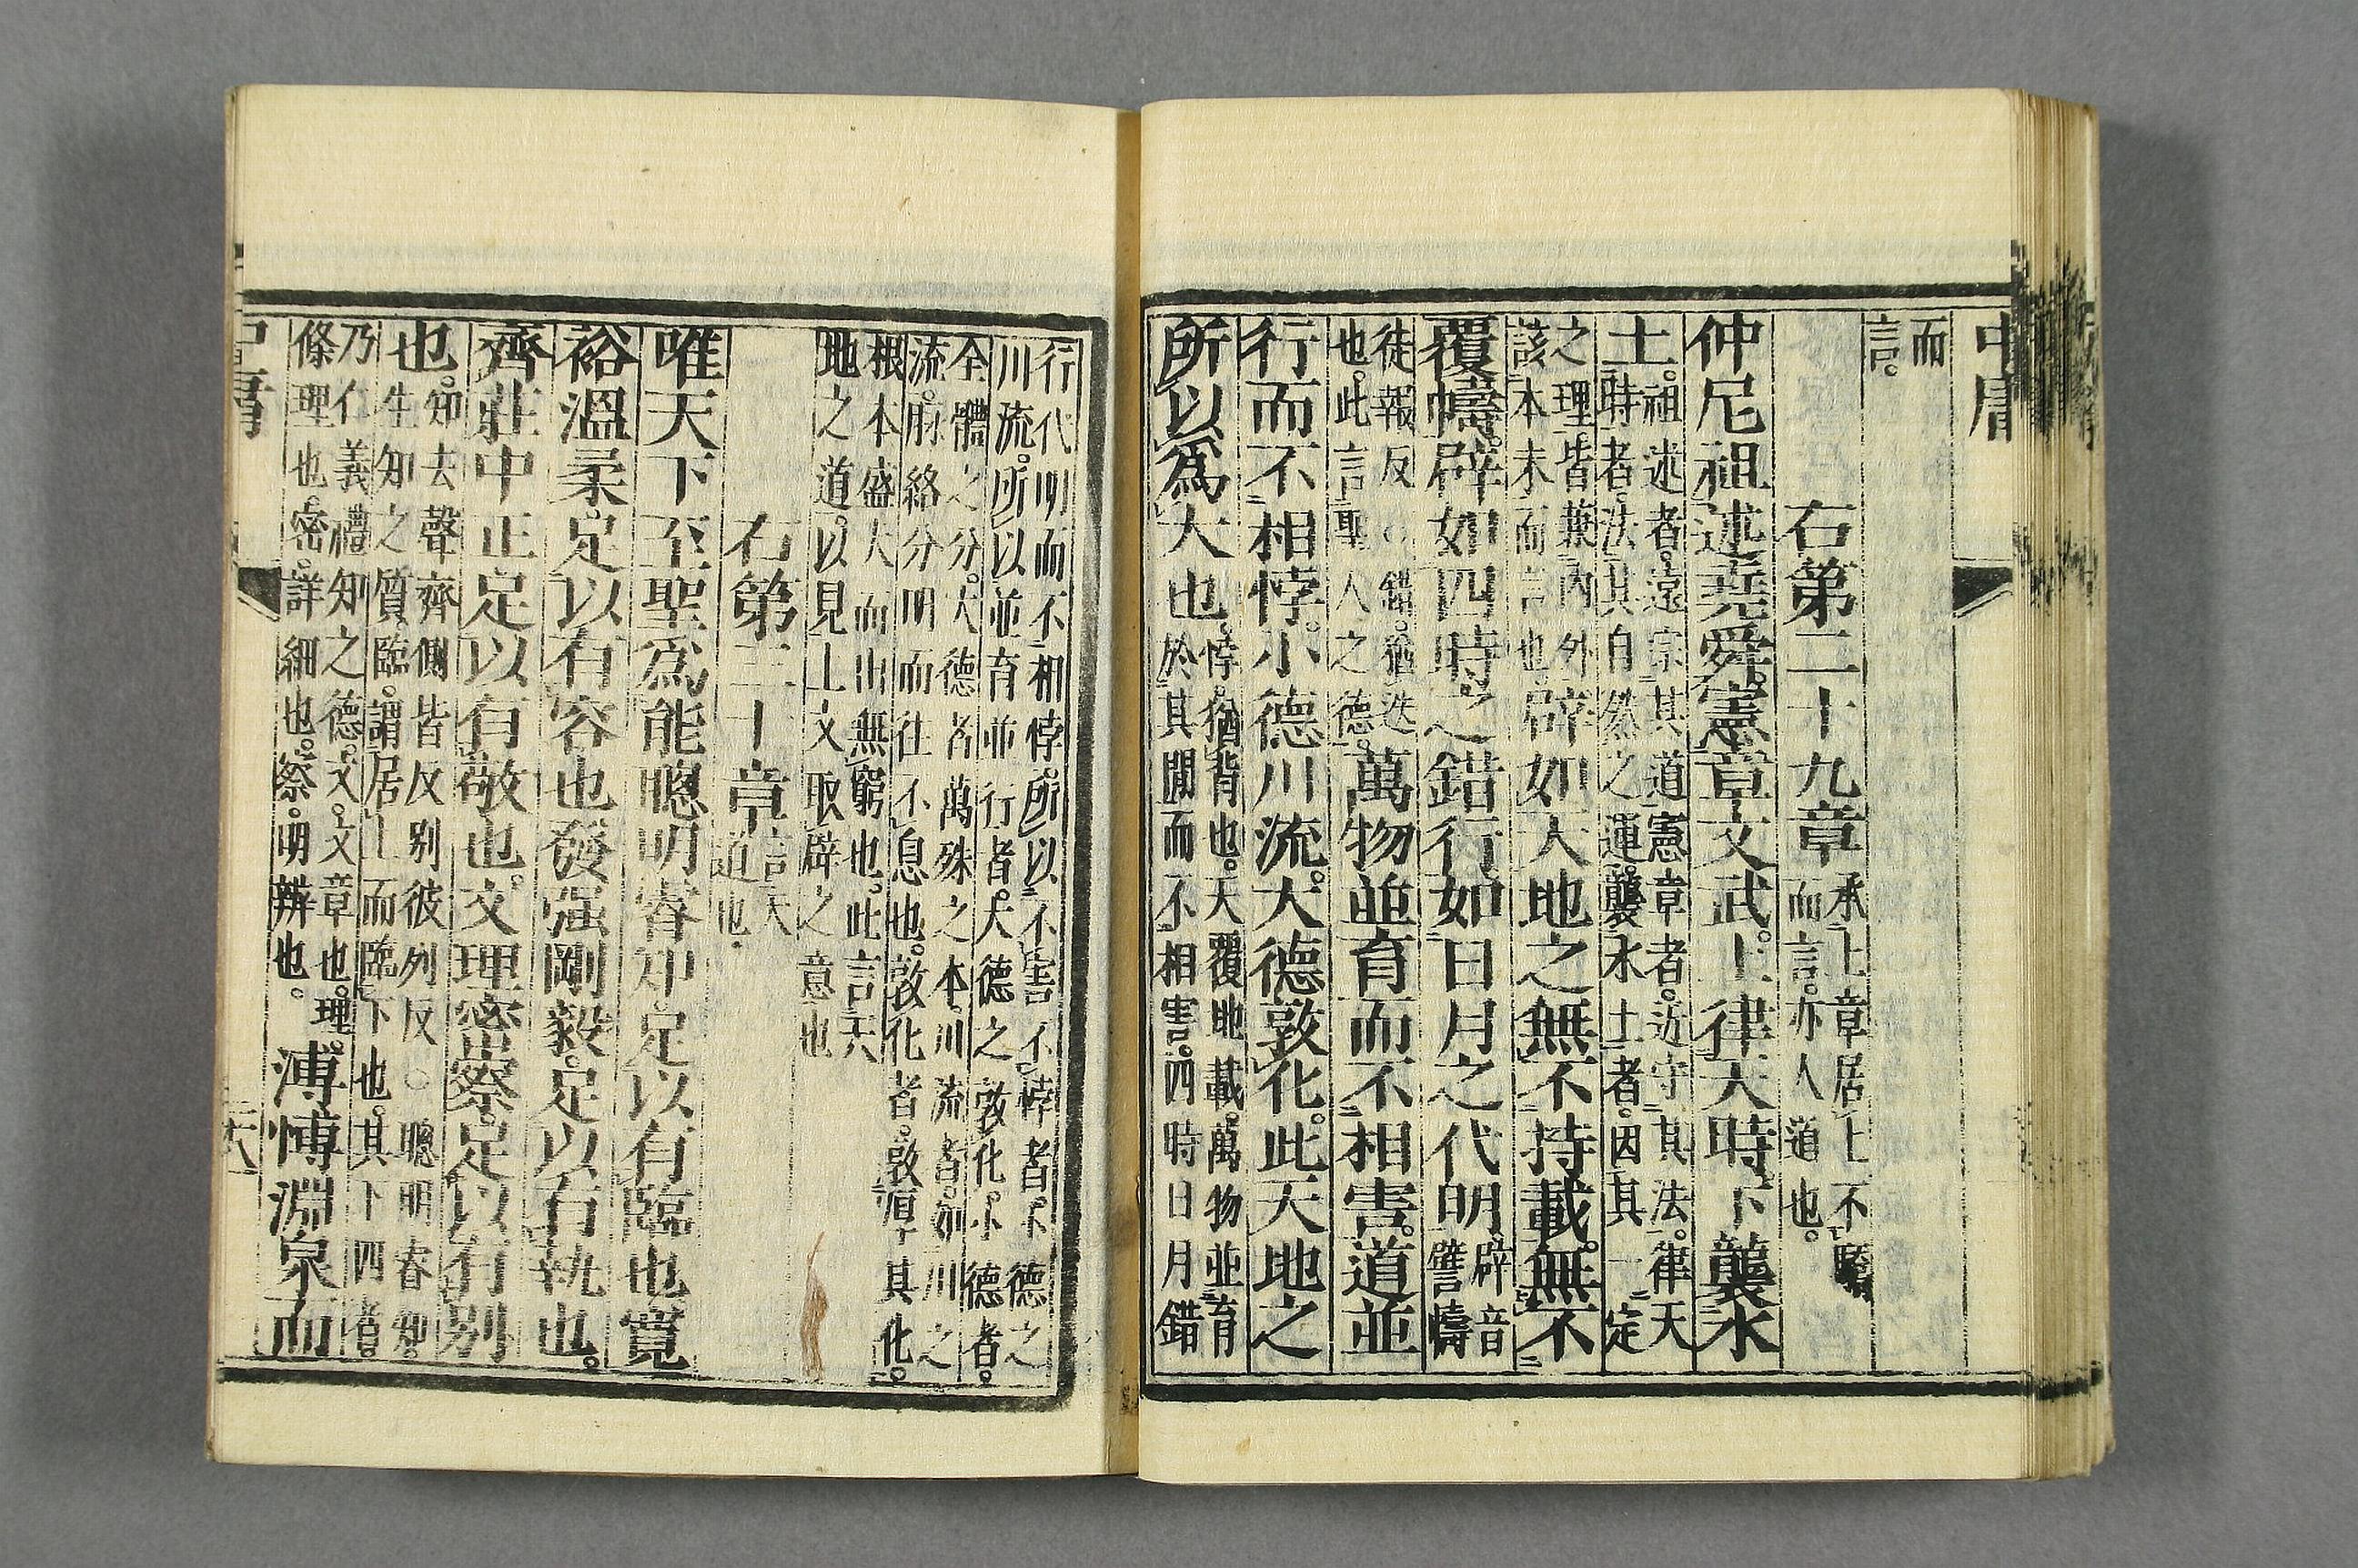 中庸
而
言。
右第二十九章 承上章居上不驕
而言。亦人道也。
仲尼祖述堯舜。憲章文武。上律天時。下襲水
土。 祖述者。遠宗其道。憲章者。近守其法。律天
時者。法其自然之運。襲水土者。因其一定
之理。皆兼內外
該本末而言也。 辟如天地之無不持載。無不
覆幬。辟如四時之錯行。如日月之代明。 辟音
譬幬
徒報反。○錯。猶迭
也。此言聖人之德。 萬物並育而不相害。道並
行而不相悖。小德川流。大德敦化。此天地之
所以爲大也。 悖。猶背也。天覆地載。萬物並育
於其閒而不相害。四時日月錯
行代明而不相悖。所以不害不悖者。小德之
川流。所以並育並行者。大德之敦化。小德者。
全體之分。大德者。萬殊之本。川流者。如川之
流。脉絡分明而往不息也。敦化者。敦厚其化。
根本盛大而出無窮也。此言天
地之道。以見上文取辟之意也
右第三十章 言天
道也。
唯天下至聖爲能聰明睿知。足以有臨也寬
裕溫柔。足以有容也發强剛毅。足以有執也。
齊莊中正。足以有敬也。文理密察。足以有别
也。 知去聲齊側皆反别彼列反○聰明睿知。
生知之質。臨。謂居上而臨下也。其下四者。
乃仁義禮知之德。文。文章也。理。
條理也。密。詳細也。察。明辨也。 溥博淵泉而
中庸
二十八